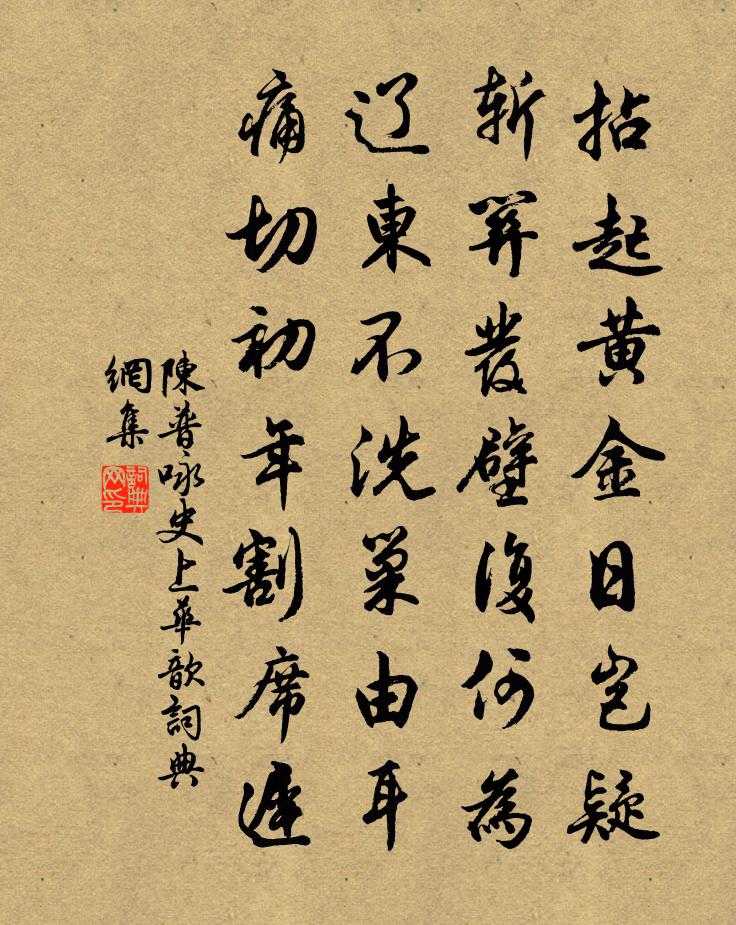 拈起黄金日岂疑
斩笄發壁復何為
辽東不洗巢由耳
痛切初年割席遲
陳普咏史上華歆詞典
網集
詞典网印